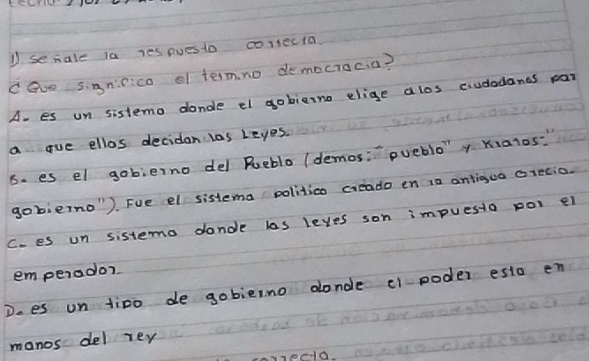 1) señale la respuesta correcta.
¿Que significa el termino democracia?
A- es un sistema donde el gobierno elige a los ciudadanos par
a que ellos decidan las Leyes.
B- es el gobierno del Pueblo (demos: "pueblo" y kratos:"
gobierno"). Fue el sistema politico creado en la antigua Grecia.
C- es un sistema donde las leyes son impuesta por el
emperador
D- es un tipo de gobierno donde el poder esta en
manos del rey
correcta.